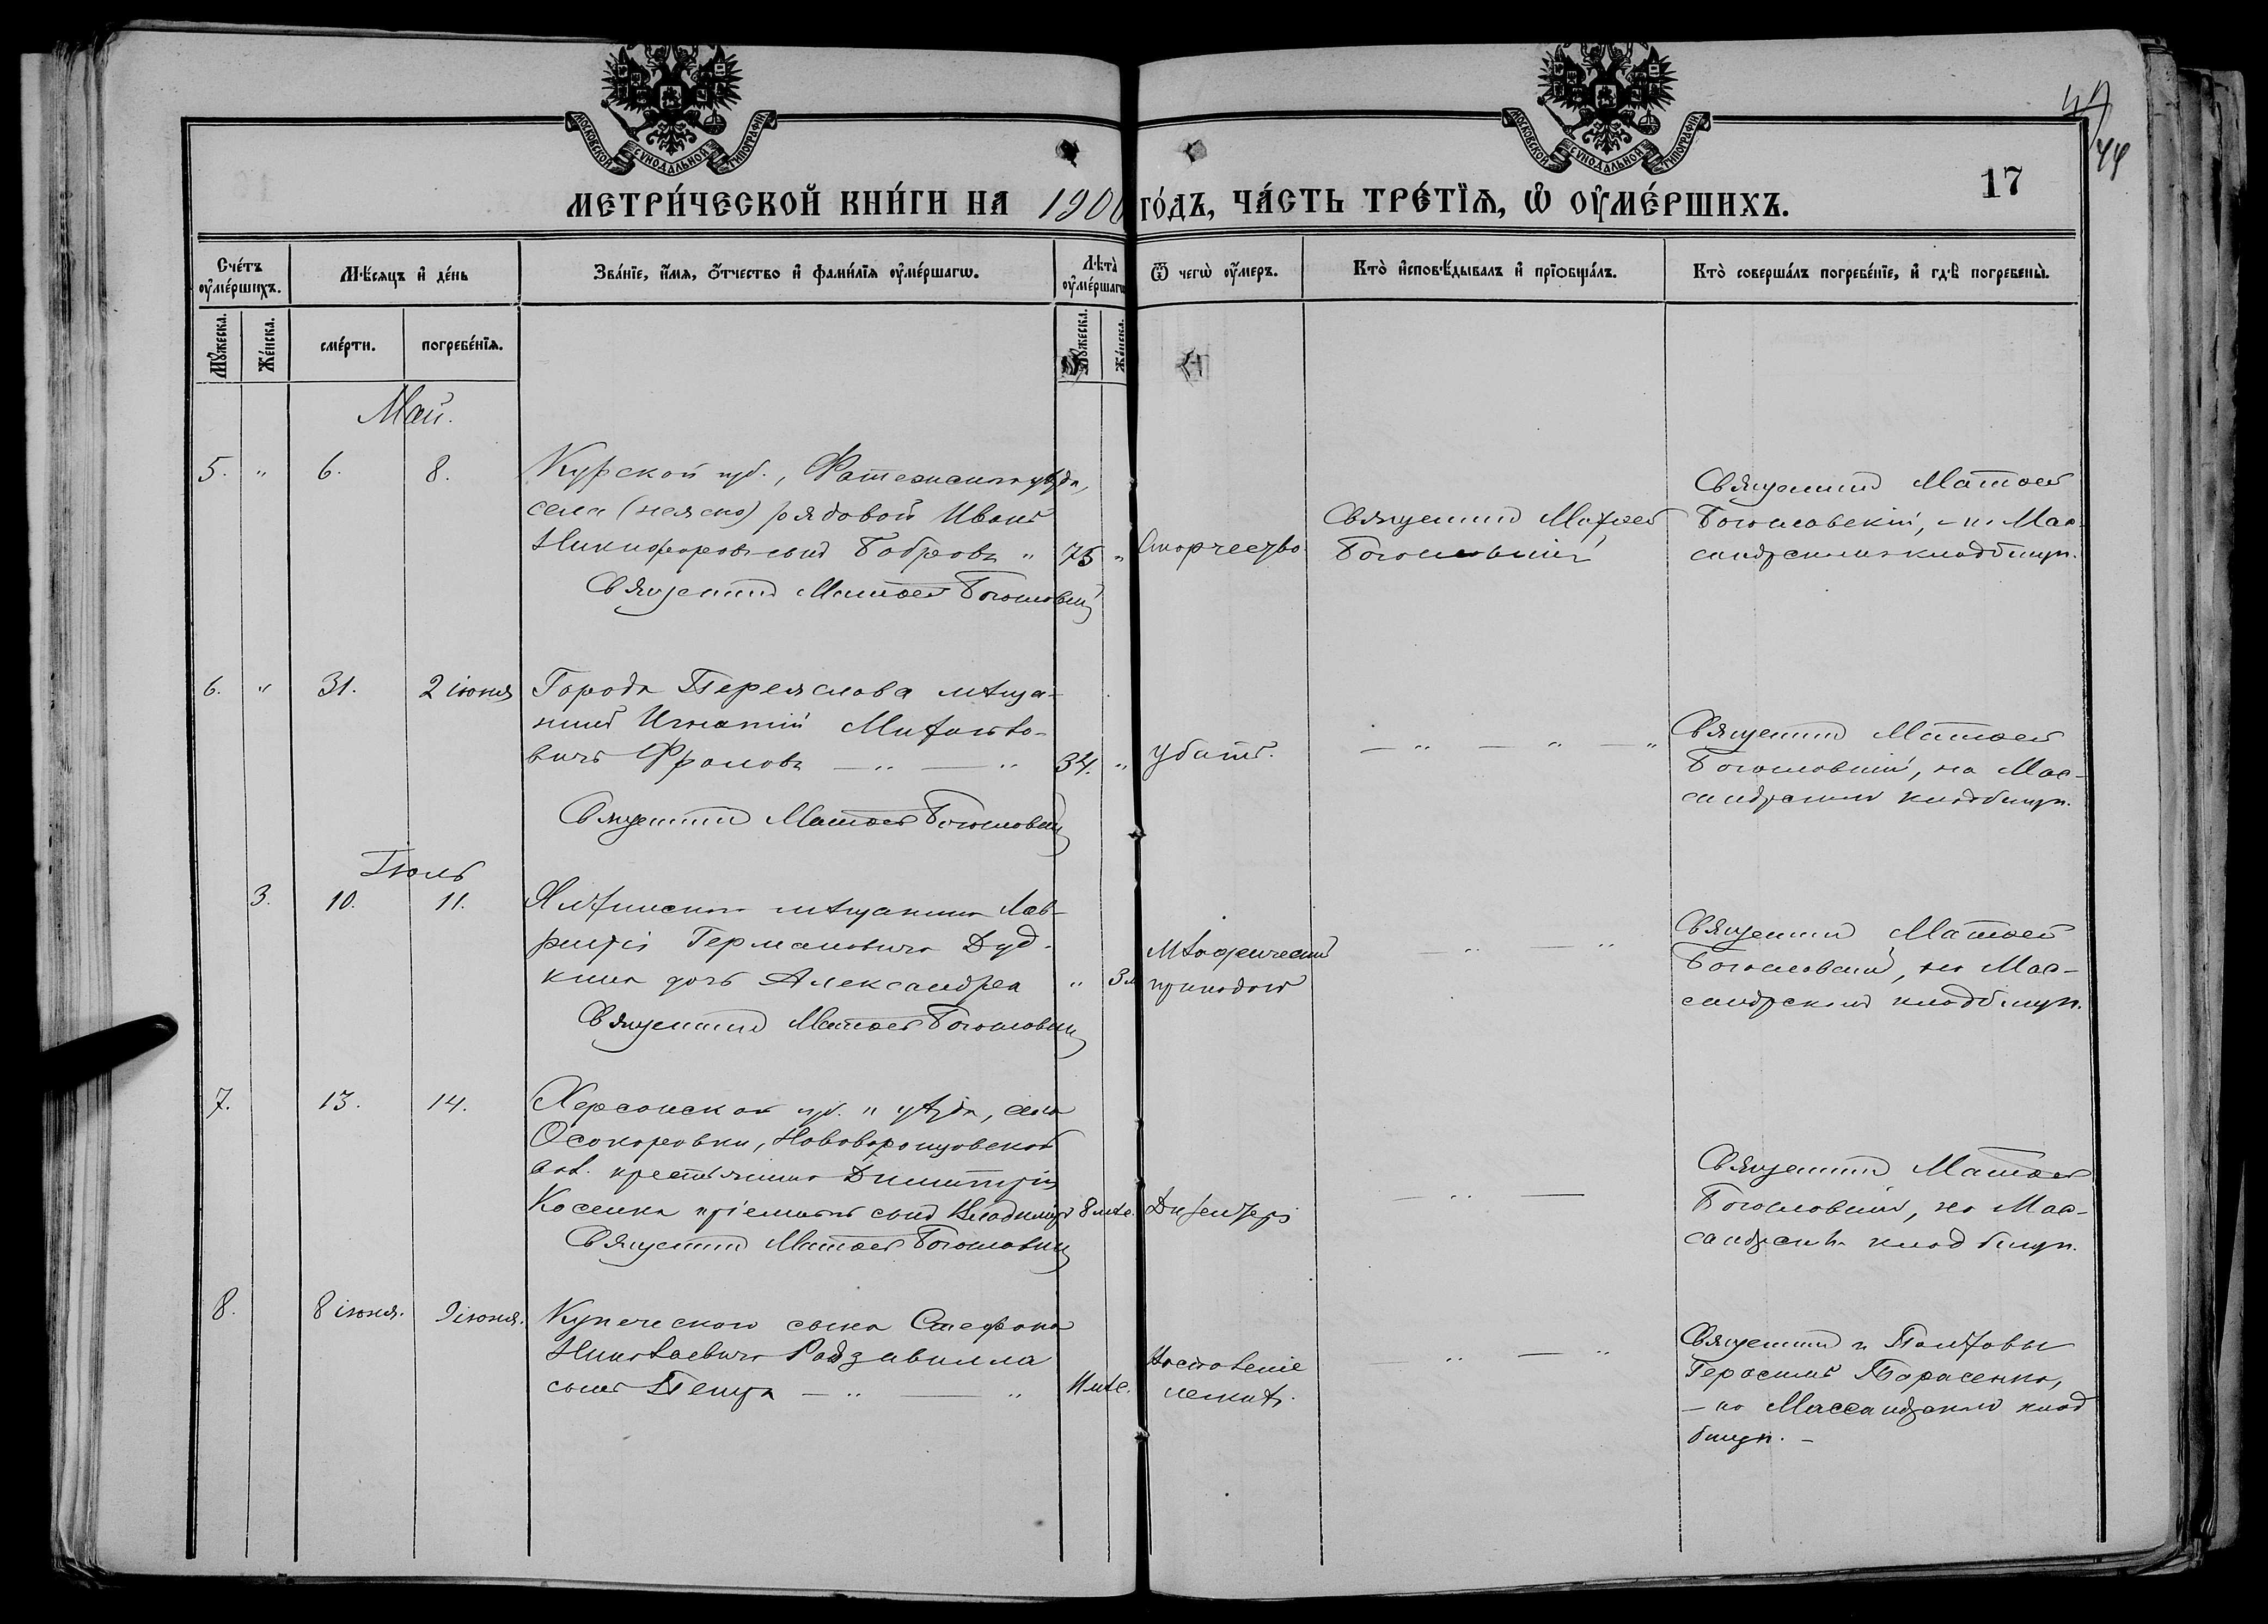 МОСКОВСКОЙ СѴНОДАЛЬНОЙ ТИПОГРАФІИ
МОСКОВСКОЙ СѴНОДАЛЬНОЙ ТИПОГРАФІИ
44
17
МЕТРИ́ЧЕСКОЙ КНИ́ГИ НА 1900 ГО́ДЪ, ЧА́СТЬ ТРЕ́ТЇѦ, Ѡ ОУМЕ́РШИХЪ.
Сче́тъ оуме́ршихъ.
Мѣ́сяцъ и де́нь
Зва́нїе, и́мя, о́тчество и фами́лїя оуме́ршагѡ.
Лѣта̀ оуме́ршагѡ
Ѿ чегѡ̀ оу́меръ.
Кто̀ исповѣ́дывалъ и прїѡбща́лъ.
Кто̀ соверша́лъ погребе́нїе, и гдѣ̀ погребены̀.
Мужеска.
Же́нска.
сме́рти.
погребе́нїя.
Мужеска.
Же́нска.
Май.
5. " 6. 8.
Курской губ., Фатежскаго уѣзда,
села (неясно) рядовой Иванъ
Никифоровъ сынъ Бобровъ " 75 "
Священникъ Матѳей Богословскій
Старчество
Священникъ Матѳей
Богословскій
Священникъ Матѳей
Богословскій, на Мас-
сандрскомъ кладбищѣ.
6. " 31. 2 іюня
Города Переяслова мѣща-
нинъ Игнатій Михайло-
вичъ Фроловъ — " — " 34. "
Священникъ Матѳей Богословскій
убитъ.
— " — " — "
Священникъ Матѳей
Богословскій, на Мас-
сандрскомъ кладбищѣ.
Іюль
3. 10. 11.
Ялтинскаго мѣщанина Лав-
рентія Германовича Дуд-
кина дочь Александра " 3 м
Священникъ Матѳей Богословскій
Младенческій
припадокъ
" — "
Священникъ Матѳей
Богословскій, на Мас-
сандрскомъ кладбищѣ.
7. 13. 14.
Херсонской губ. и уѣзда, села
Осокоровки, Нововоронцовской
вол. крестьянина Димитрія
Косенка пріемышъ сынъ Владиміръ 8 мѣс.
Священникъ Матѳей Богословскій
Дизентерія
— " —
Священникъ Матѳей
Богословскій, на Мас-
сандрскомъ кладбищѣ.
8. 8 іюня. 9 іюня.
Купеческаго сына Стефана
Николаевича Радзавилла
сынъ Петръ — " — " 11 мѣс.
Воспаленіе
легкихъ.
— " — "
Священникъ г. Полтавы
Герасимъ Тарасенко,
— на Массандрскомъ клад
бищѣ. —